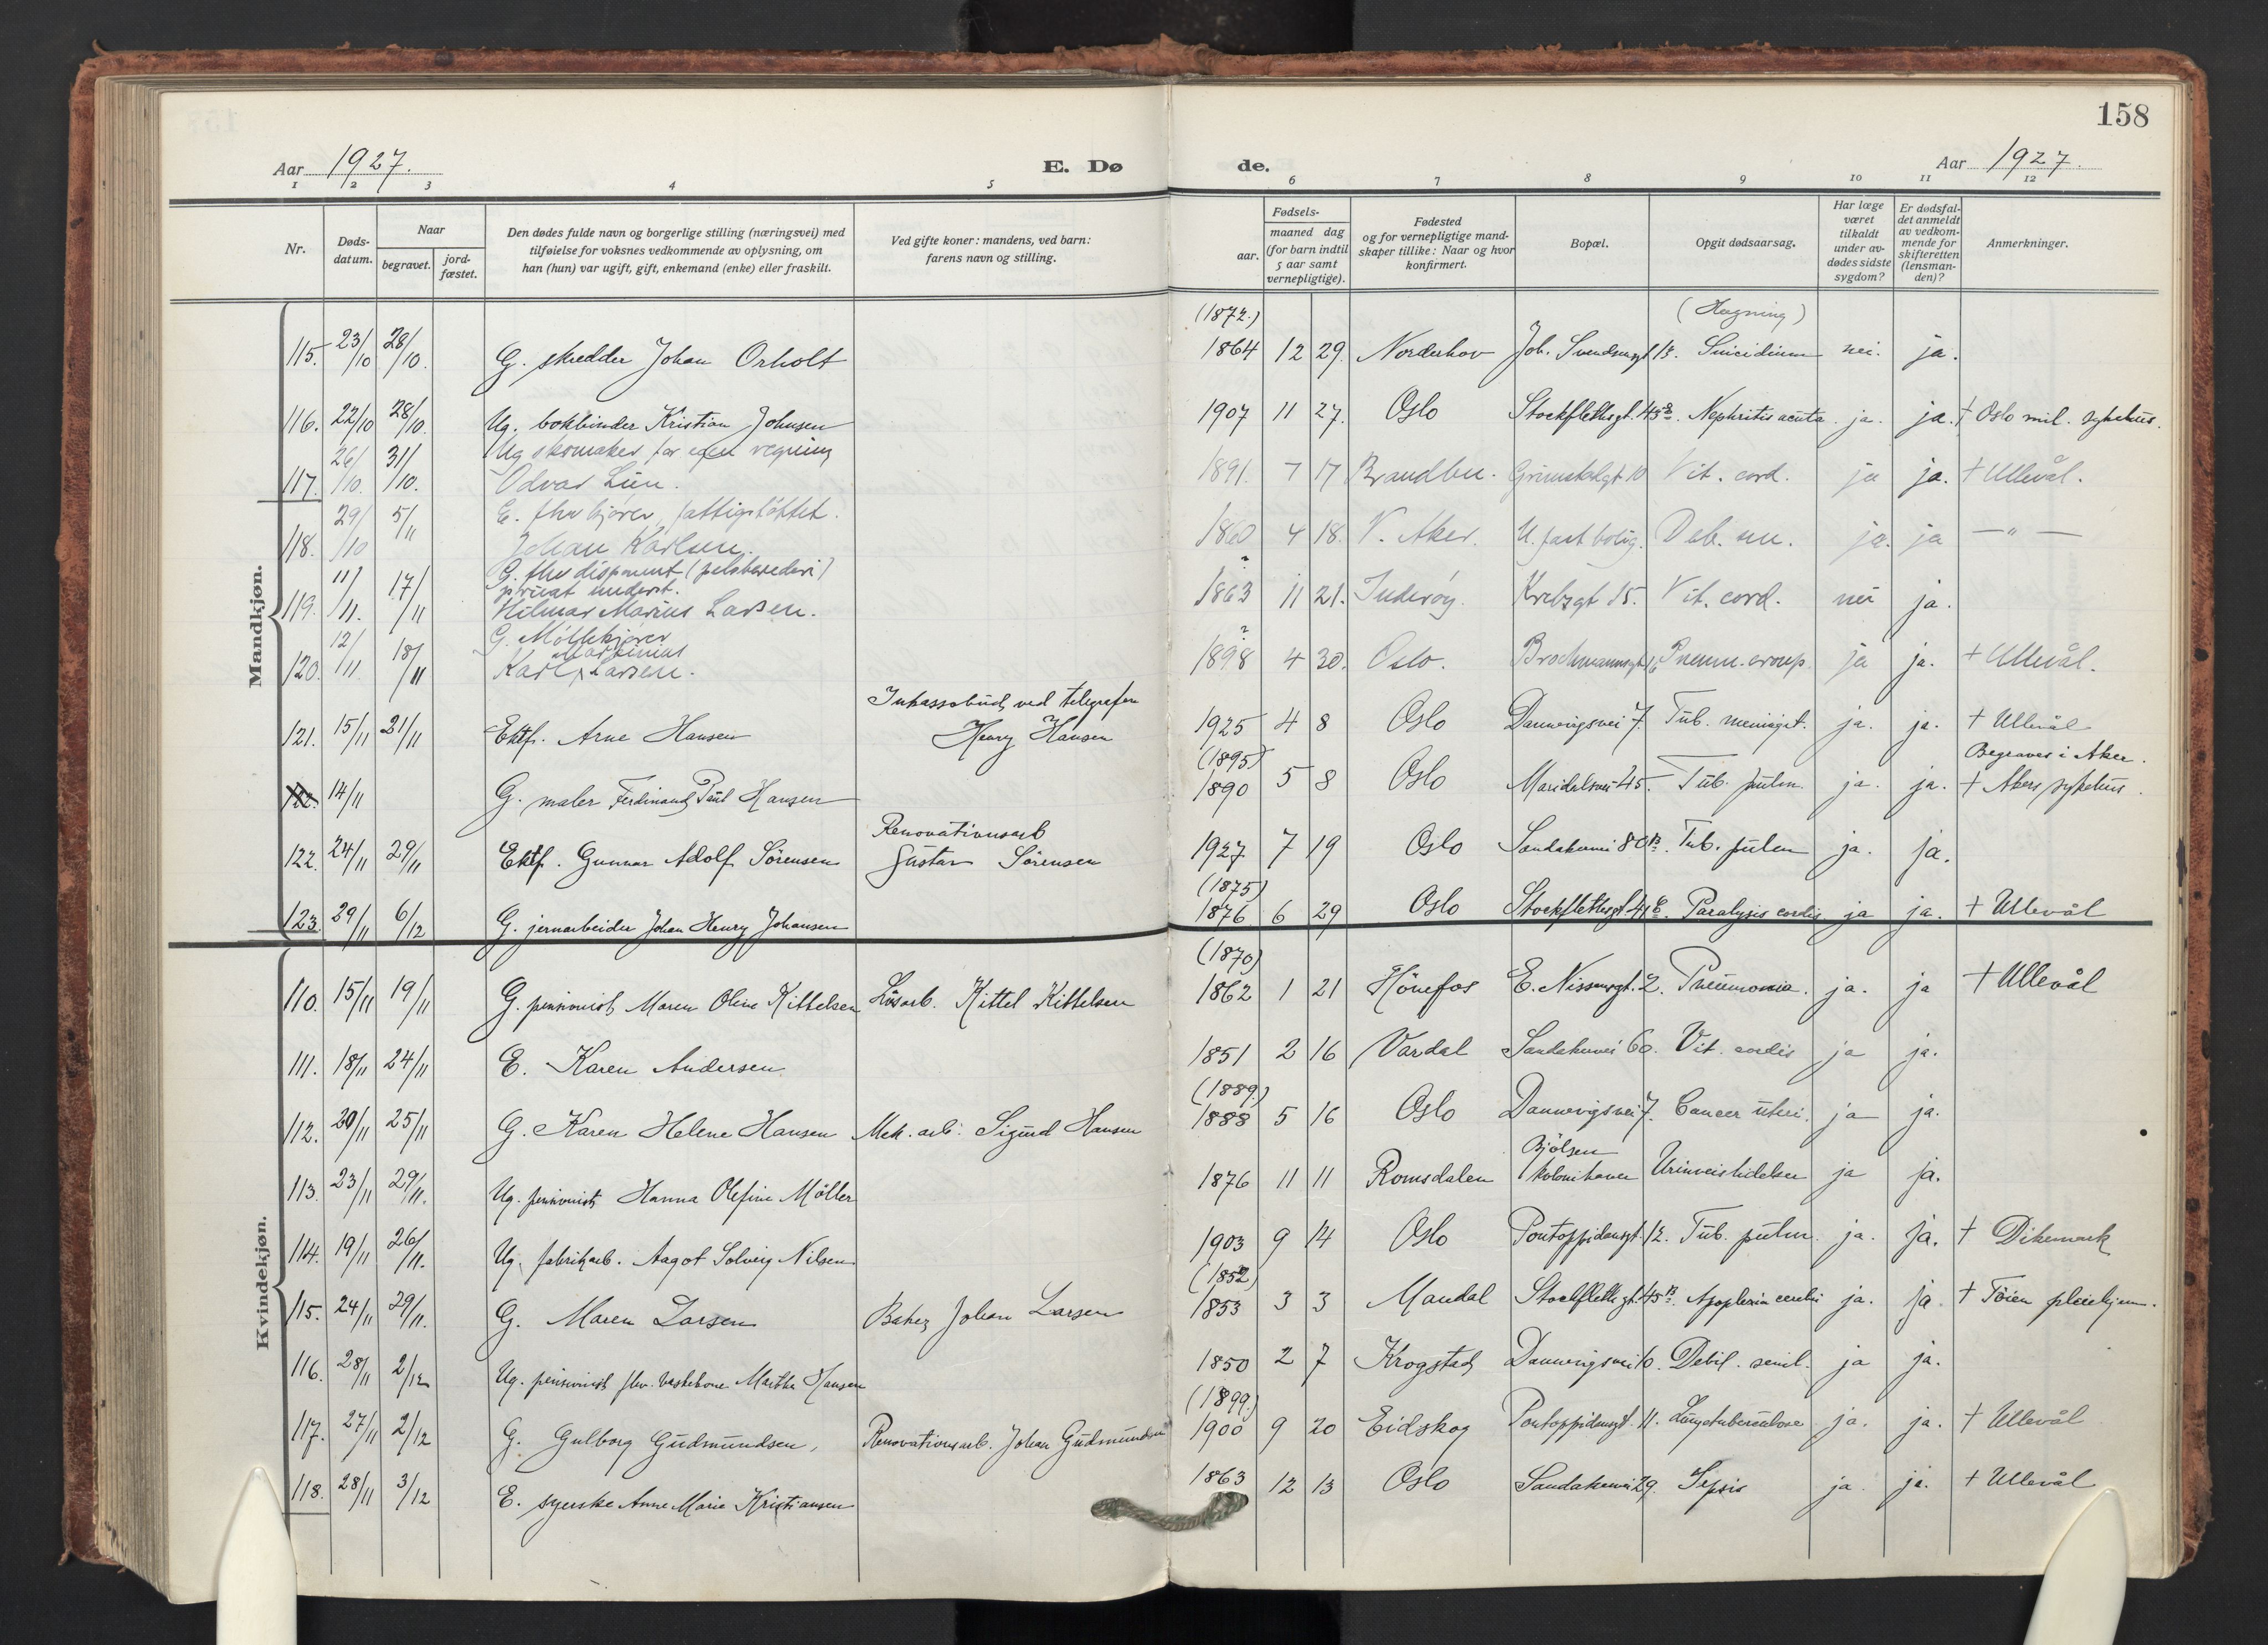 158
Aar 1927. E. Dø de. Aar 1927.
1 2 3 4 5 6 7 8 9 10 11 12
Nr.
Døds-
datum.
Naar
begravet.
jord-
fæstet.
Den dødes fulde navn og borgerlige stilling (næringsvei) med
tilføielse for voksnes vedkommende av oplysning, om
han (hun) var ugift, gift, enkemand (enke) eller fraskilt.
Ved gifte koner: mandens, ved barn:
farens navn og stilling.
Fødsels-
aar.
maaned dag
(for barn indtil
5 aar samt
vernepligtige).
Fødested
og for vernepligtige mand-
skaper tillike: Naar og hvor
konfirmert.
Bopæl.
Opgit dødsaarsag.
Har læge
været
tilkaldt
under av-
dødes sidste
sygdom?
Er dødsfal-
det anmeldt
av vedkom-
mende for
skifteretten
(lensman-
den)?
Anmerkninger.
Mandkjøn.
(1872.) (Hægning)
115. 23/10 28/10. G. skredder Johan Orholt 1864 12 29. Norderhov Joh. Svendsensgt 13. Suicidium nei. ja.
116. 22/10 28/10. Ug. bokbinder Kristian Johnsen 1907 11 27. Oslo Stockflethsgt. 43 B. Nephritis acuta. ja. ja. † Oslo mil. sykehus.
Ug skomaker for egen regning
117. 26/10. 31/10. Odvar Lien. 1891. 7 17 Brandbu. Grimstadgt 10 Vit. cord. ja ja. † Ullevål.
E. fhv kjører, fattigstøttet.
118. 29/10 5/11 Johan Karlsen. 1860 4 18. V. Aker. U. fast bolig. Deb. sen. ja. ja — " —
G. fhv disponent (pelsberederi)
privat underst.
119. 11/11. 17/11 Hilmar Marius Larsen. 1863 11 21. Inderøy. Krebsgt 15. Vit. cord. nei ja.
G. Møllekjører
Martinius
120. 12/11. 18/11 Karl Larsen. 1898 4 30. Oslo. Brochmannsgt 16 Pneum. croup. ja ja. † Ullevål.
Inkassobud ved telegrafen
121. 15/11 21/11 Ektf. Arne Hansen Henry Hansen 1925 4 8 Oslo Dannevigsvei 7. Tub. meningit. ja. ja. † Ullevål
(1895) Begraves i Aker.
122. 14/11 G. maler Ferdinand Paul Hansen 1890 5 8 Oslo Maridalsvei 45. Tub. pulm. ja. ja. † Akers sykehus.
Renovationsarb
122. 24/11 29/11 Ektf. Gunnar Adolf Sørensen Gustav Sørensen 1927 7 19 Oslo Sandakervei 80 B. Tub. pulm ja. ja.
(1875)
123. 29/11 6/12 G. jernarbeider Johan Henry Johansen 1876 6 29 Oslo Stockflethsgt 41 C. Paralysis cordis ja ja. † Ullevål
Kvindekjøn.
(1870)
110. 15/11 19/11 G. pensionist Maren Oline Kittelsen Løsarb. Kittel Kittelsen 1862 1 21 Hönefos E. Nissensgt. 2. Pneumonia. ja. ja † Ullevål
111. 18/11 24/11 E. Karen Andersen 1851 2 16 Vardal Sandakervei 60. Vit. cordis ja ja.
(1889.)
112. 20/11 25/11 G. Karen Helene Hansen Mek. arb. Sigurd Hansen 1888 5 16 Oslo Dannevigsvei 7. Cancer uteri. ja ja.
Bjølsen
113. 23/11 29/11. Ug. pensionist Hanna Olefine Møller 1876 11 11 Romsdalen kolonihaver Urinveislidelse ja ja.
114. 19/11 26/11. Ug. fabrikarb. Aagot Solveig Nilsen 1903 9 14 Oslo Pontoppidansgt. 12. Tub. pulm. ja. ja. † Dikemark
(1852)
115. 24/11 29/11. G. Maren Larsen Baker Johan Larsen 1853 3 3 Mandal Stockflethsgt. 45 B. Apoplexia cerebri ja. ja. † Tøien pleiehjem.
116. 28/11 2/12 Ug. pensionist fhv. vaskekone Marthe Hansen 1850 2 7 Krogstad Dannevigsvei 10. Debil. senil. ja ja.
(1899.)
117. 27/11 2/12 G. Gulborg Gudmundsen, Renovationsarb. Johan Gudmundsen 1900 9 20 Eidskog Pontoppidansgt. 11. Lungetuberkulose ja. ja. † Ullevål
118. 28/11 3/12 E. syerske Anne Marie Kristiansen 1863 12 13 Oslo Sandakervei 29. Sepsis ja. ja. † Ullevål